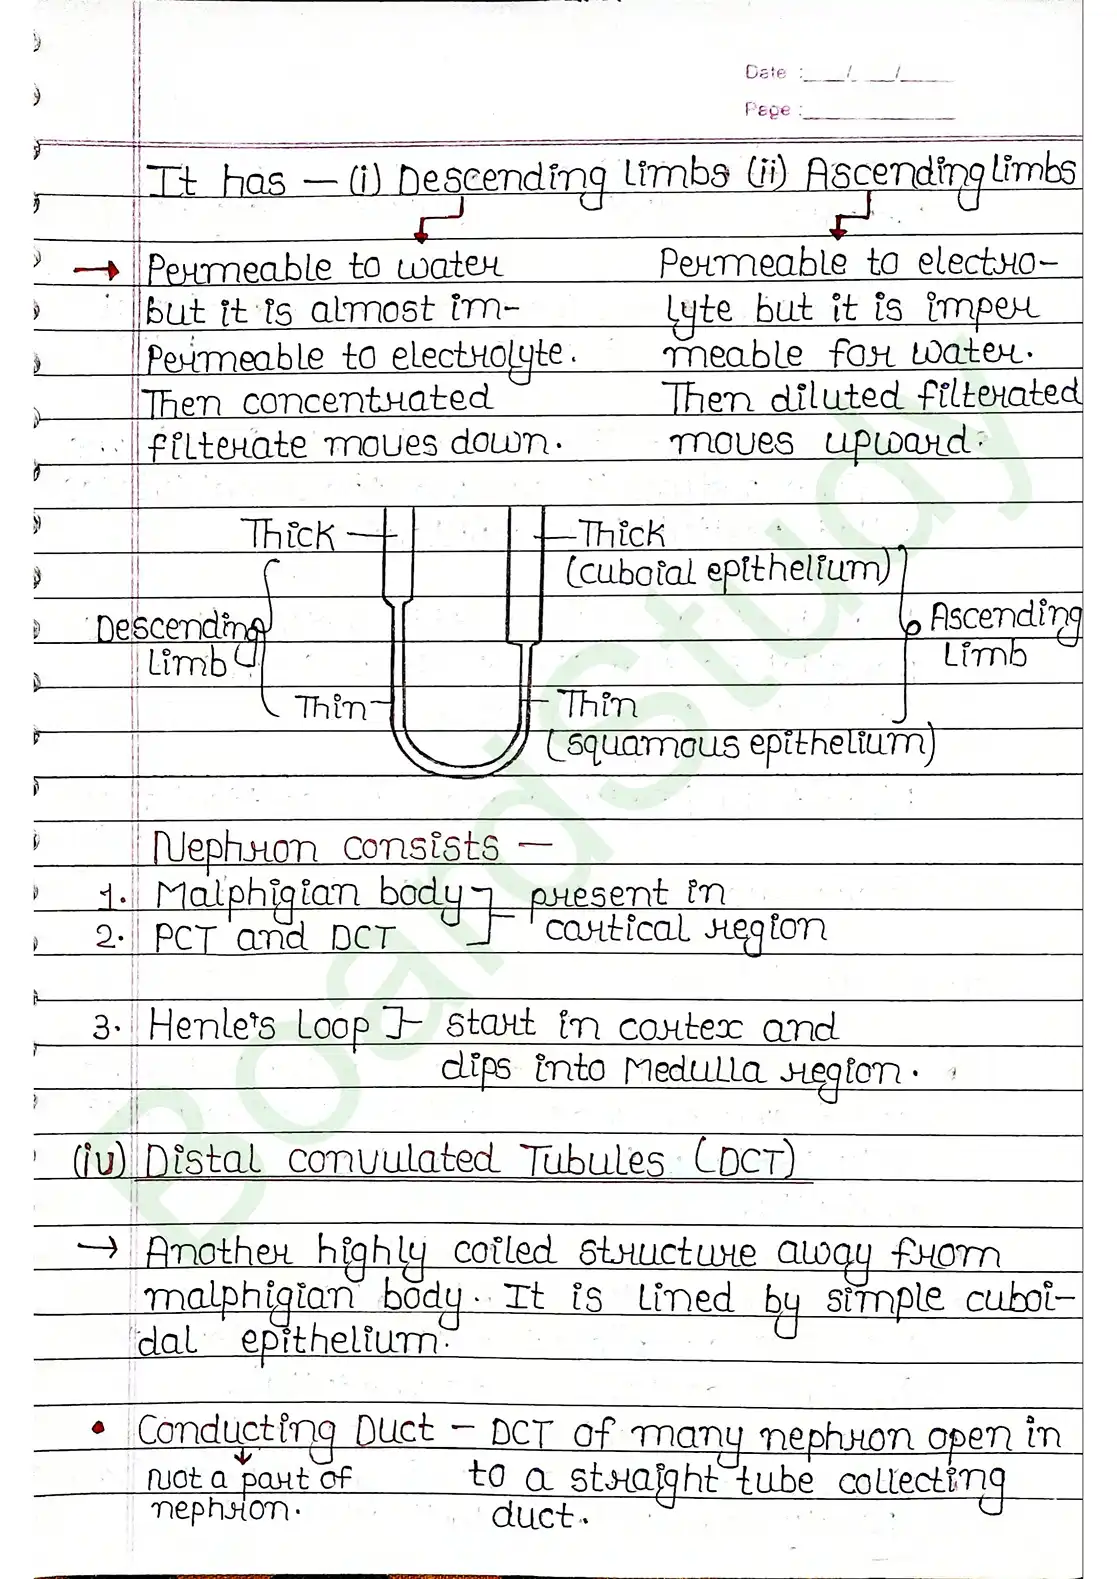 Date :___/___/____
Page :__________
It has – (i) Descending Limbs (ii) Ascending Limbs
→ Permeable to water
but it is almost im-
Permeable to electrolyte.
Then concentrated
filterate moves down.
Permeable to electro-
lyte but it is imper
meable for water.
Then diluted filterated
moves upward.
Thick
Descending
Limb
Thin
Thick
(cuboial epithelium)
Thin
(squamous epithelium)
Ascending
Limb
Nephron consists –
1. Malphigian body
2. PCT and DCT
present in
cortical region
3. Henle's Loop – start in cortex and
dips into Medulla region.
(iv) Distal convulated Tubules (DCT)
→ Another highly coiled structure away from
malphigian body. It is lined by simple cuboi-
dal epithelium.
• Conducting Duct – DCT of many nephron open in
to a straight tube collecting
duct.
Not a part of
nephron.
BoardStudy